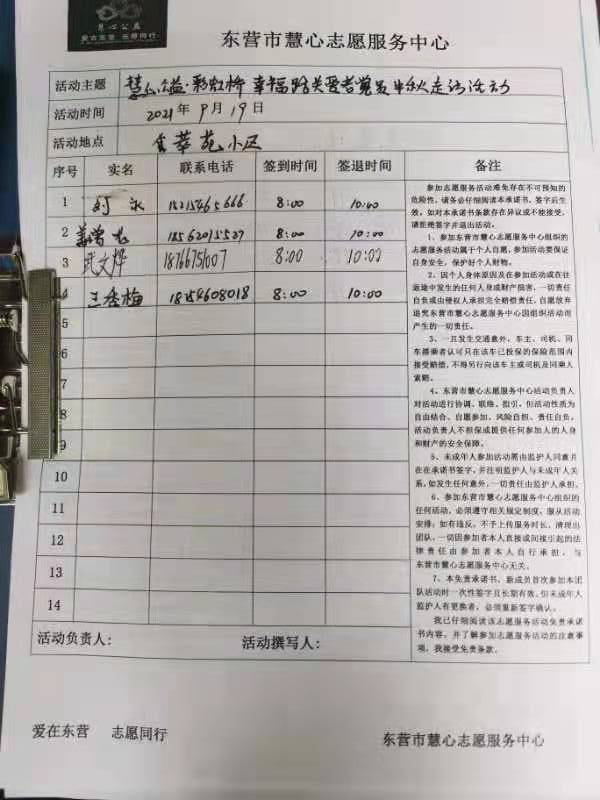 慧心公益
爱在东营 志愿同行
东营市慧心志愿服务中心
活动主题 慧心公益·彩虹桥 幸福路关爱老党员中秋走访活动
活动时间 2021年9月19日
活动地点 香萃苑小区
序号 实名 联系电话 签到时间 签退时间 备注
1 8:00 10:00
2 18562015527 8:00 10:00
3 武文烨 18766751007 8:00 10:00
4 王秀梅 18254608018 8:00 10:00
5
6
7
8
9
10
11
12
13
14
参加志愿服务活动难免存在不可预知的
危险性，请务必仔细阅读本承诺书，签字后生
效。如对本承诺书条款存在异议或不能接受，
请拒绝签字并退出活动。
1、参加东营市慧心志愿服务中心组织的
志愿服务活动属于个人自愿，参加活动要保证
自身安全，保护好个人财物。
2、因个人身体原因及在参加活动或在往
返途中发生的任何人身或财产损害，一切责任
自负或由侵权人承担完全赔偿责任，自愿放弃
追究东营市慧心志愿服务中心因组织活动而
产生的一切责任。
3、一旦发生交通意外，车主、司机、同
车搭乘者认可只在该车已投保的保险范围内
接受赔偿，不得另行向该车主或司机及同乘人
索赔。
4、东营市慧心志愿服务中心活动负责人
对活动进行协调、联络、指引，但活动性质为
自由结合、自愿参加、风险自担、责任自负。
活动负责人不担保或提供任何参加人的人身
和财产的安全保障。
5、未成年人参加活动需由监护人同意并
在在承诺书签字，并注明监护人与未成年人关
系，如发生任何意外，一切责任由监护人承担。
6、参加东营市慧心志愿服务中心组织的
任何活动，必须遵守相关规定制度，服从活动
安排；如有违反，不予上传服务时长，清理出
团队，一切因参加者本人直接或间接引起的法
律责任由参加者本人自行承担，与
东营市慧心志愿服务中心无关。
7、本负责承诺书，新成员首次参加本团
队活动时一次性签字且长期有效，但未成年人
监护人有更换者，必须重新签字确认。
我已仔细阅读该志愿服务活动免责承诺
书内容，并了解参加志愿服务活动的注意事
项，我接受免责条款。
活动负责人： 活动撰写人：
爱在东营 志愿同行 东营市慧心志愿服务中心